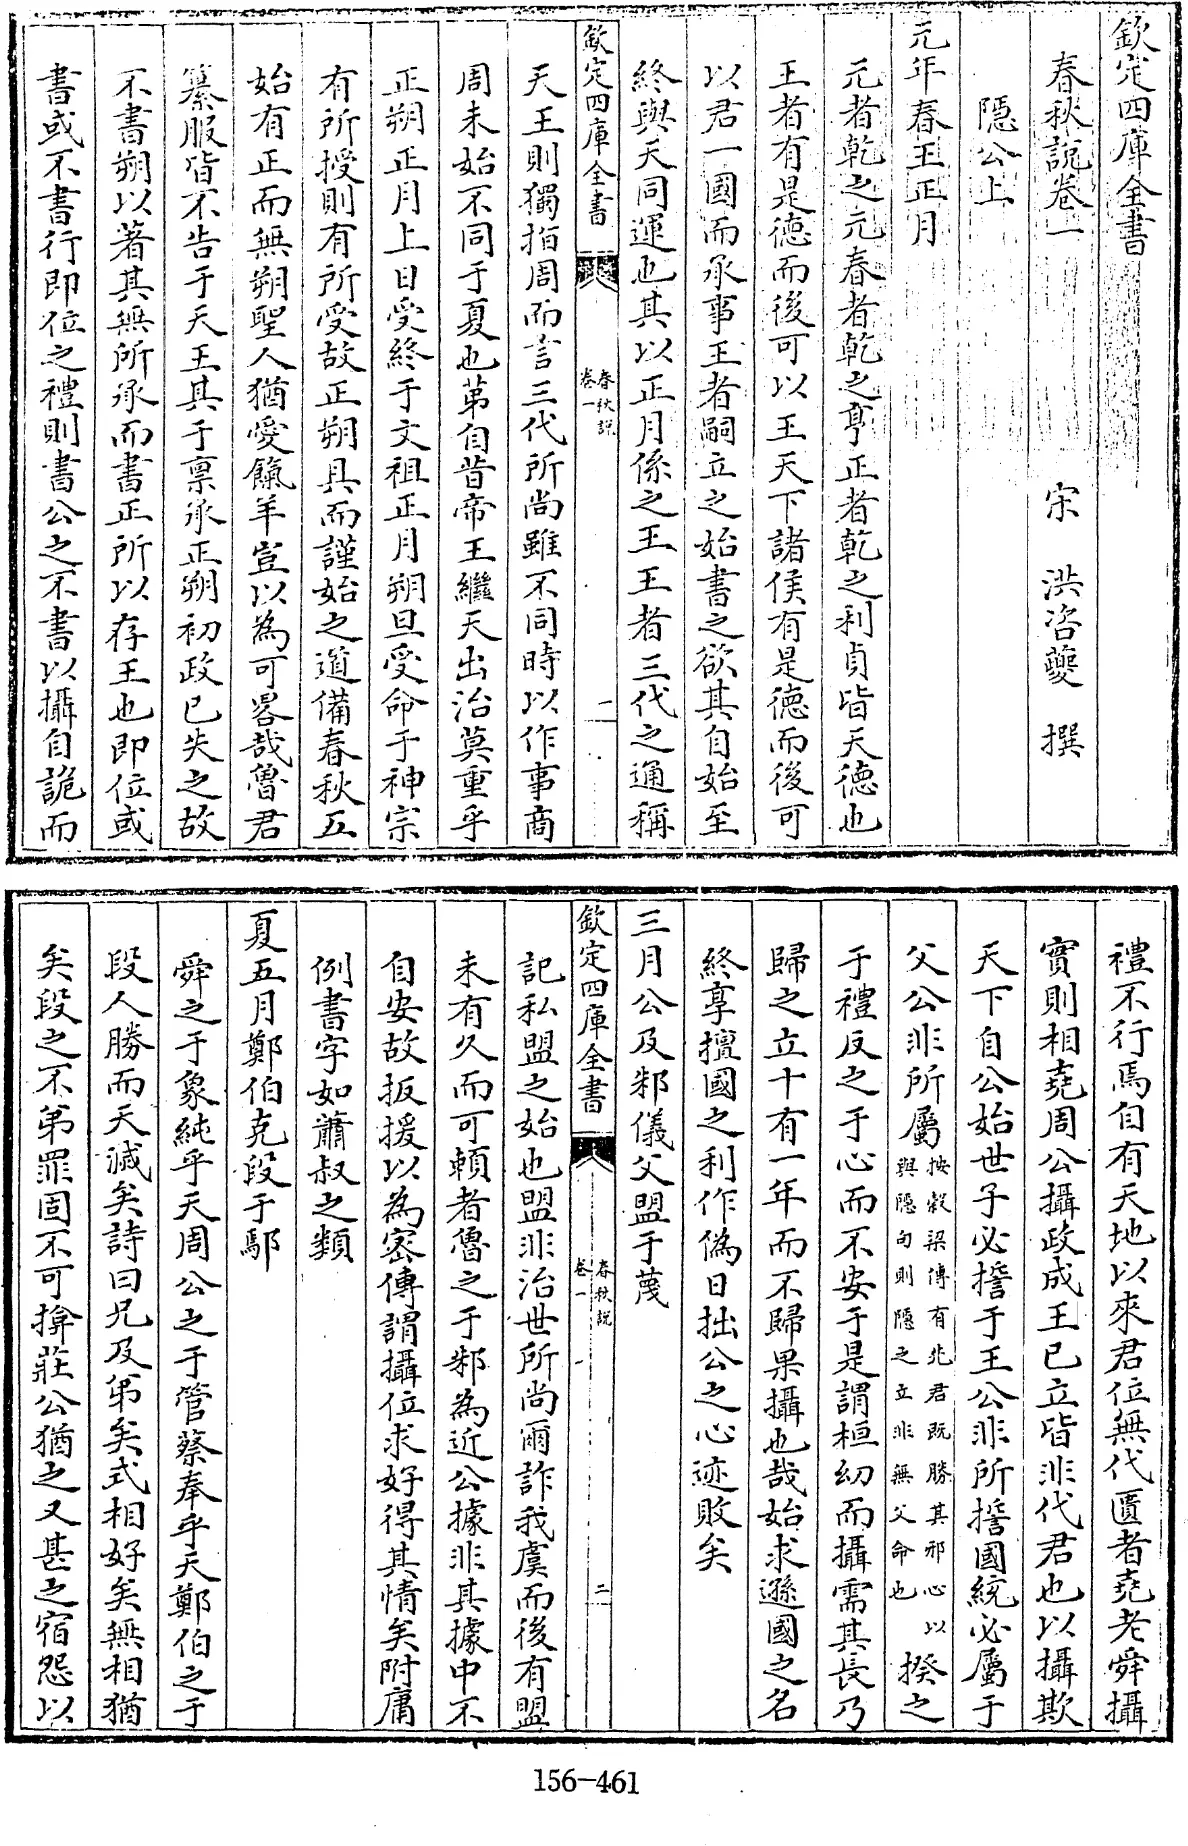 欽定四庫全書
春秋說卷一
宋 洪咨夔 撰
隱公上
元年春王正月
元者乾之元春者乾之亨正者乾之利貞皆天德也
王者有是德而後可以王天下諸侯有是德而後可
以君一國而承事王者嗣立之始書之欲其自始至
終與天同運也其以正月係之王王者三代之通稱
欽定四庫全書
春秋說
卷一
一
天王則獨指周而言三代所尚雖不同時以作事商
周未始不同于夏也第自昔帝王繼天出治莫重乎
正朔正月上日受終于文祖正月朔旦受命于神宗
有所授則有所受故正朔具而謹始之道備春秋五
始有正而無朔聖人猶愛餼羊豈以為可畧哉魯君
纂服皆不告于天王其于禀承正朔初政已失之故
不書朔以著其無所承而書正所以存王也即位或
書或不書行即位之禮則書公之不書以攝自詭而
禮不行焉自有天地以來君位無代匱者堯老舜攝
實則相堯周公攝政成王已立皆非代君也以攝欺
天下自公始世子必誓于王公非所誓國統必屬于
父公非所屬按穀梁傳有兆君既勝其邪心以與隱句則隱之立非無父命也揆之
于禮反之于心而不安于是謂桓幼而攝需其長乃
歸之立十有一年而不歸果攝也哉始求遜國之名
終享擅國之利作偽日拙公之心迹敗矣
三月公及邾儀父盟于蔑
欽定四庫全書
春秋說
卷一
二
記私盟之始也盟非治世所尚爾詐我虞而後有盟
未有久而可賴者魯之于邾為近公據非其據中不
自安故扳援以為密傳謂攝位求好得其情矣附庸
例書字如蕭叔之類
夏五月鄭伯克段于鄢
舜之于象純乎天周公之于管蔡奉乎天鄭伯之于
段人勝而天滅矣詩曰兄及弟矣式相好矣無相猶
矣段之不弟罪固不可揜莊公猶之又甚之宿怨以
156-461